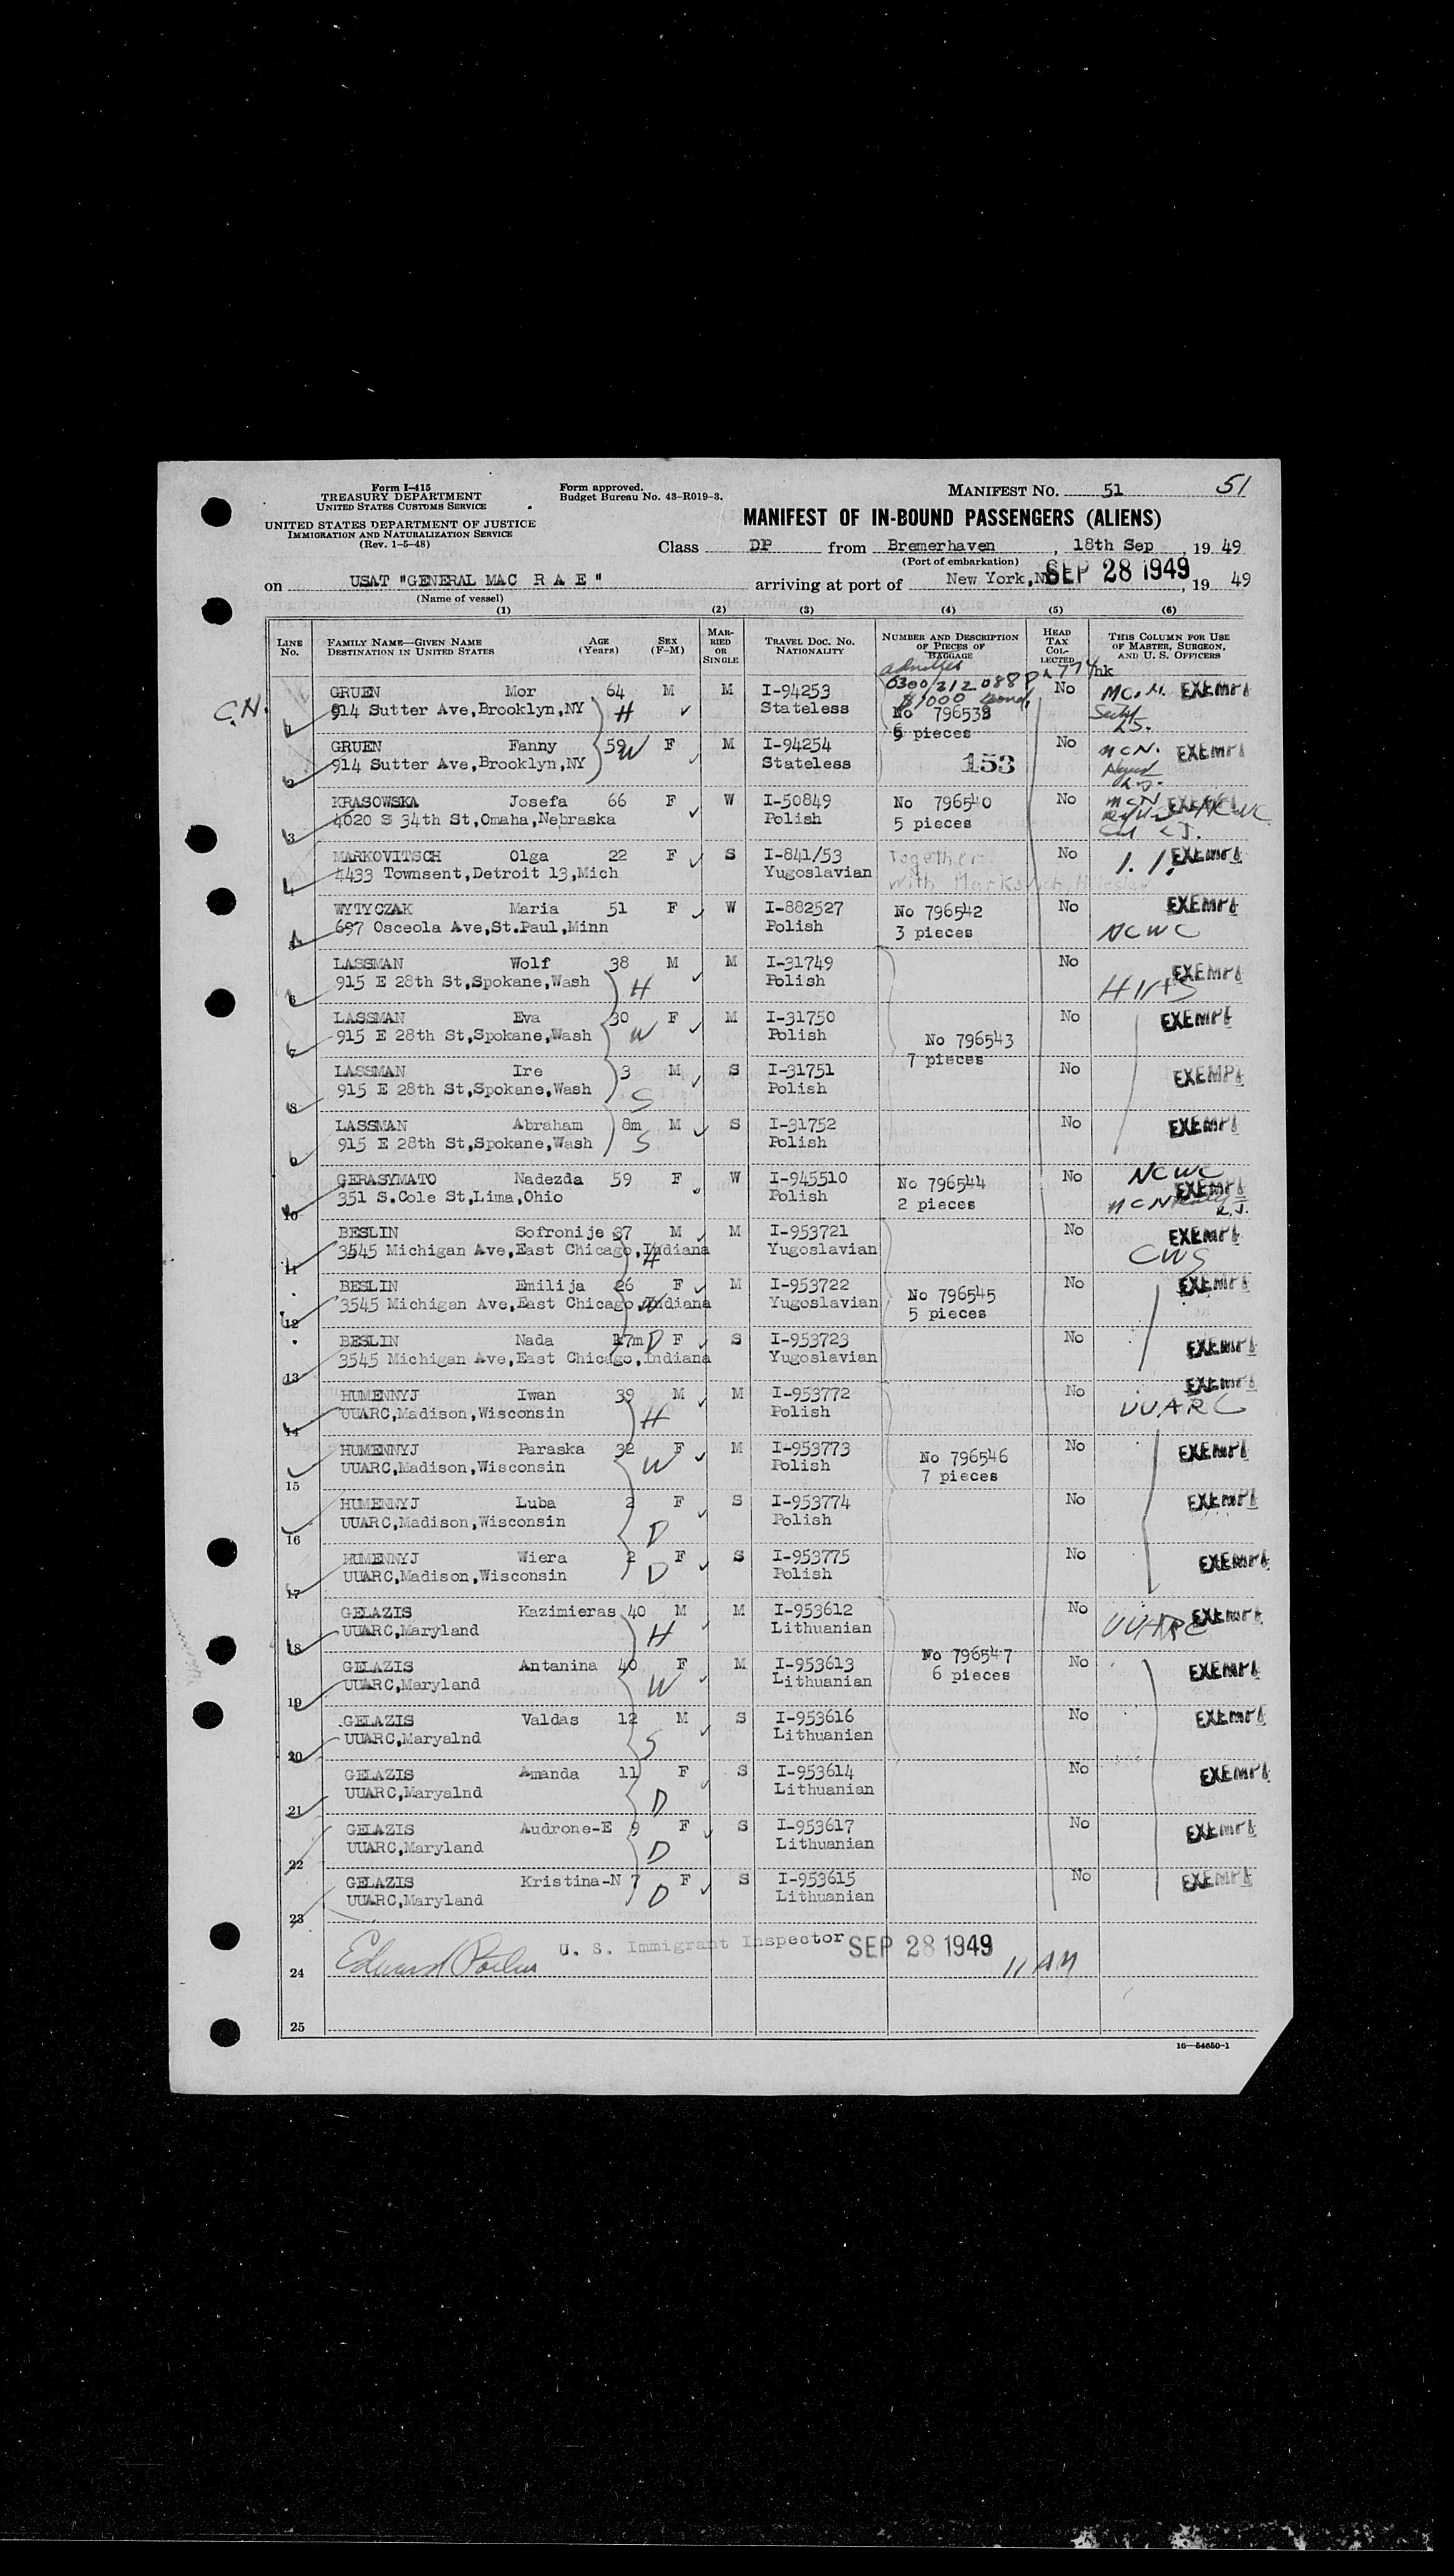 Form I-415
TREASURY DEPARTMENT
UNITED STATES CUSTOMS SERVICE
UNITED STATES DEPARTMENT OF JUSTICE
IMMIGRATION AND NATURALIZATION SERVICE
(Rev. 1-5-48)
Form approved.
Budget Bureau No. 43-R019-3.
MANIFEST NO. 51
51
MANIFEST OF IN-BOUND PASSENGERS (ALIENS)
Class DP from Bremerhaven, 18th Sep, 19 49
(Port of embarkation)
on USAT "GENERAL MAC R A E" arriving at port of New York, SEP 28 1949, 19 49
(Name of vessel)
(1) (2) (3) (4) (5) (6)
LINE No. FAMILY NAME—GIVEN NAME DESTINATION IN UNITED STATES AGE (Years) SEX (F-M) MARRIED OR SINGLE TRAVEL DOC. NO. NATIONALITY NUMBER AND DESCRIPTION OF PIECES OF BAGGAGE HEAD TAX COLLECTED THIS COLUMN FOR USE OF MASTER, SURGEON, AND U. S. OFFICERS
admitted
0300/212088
$1000 bond
C.N.
1 GRUEN Mor 64 M M I-94253 No EXEMPT
914 Sutter Ave,Brooklyn,NY H Stateless No 796538
5 pieces
2 GRUEN Fanny 59 W F M I-94254 No EXEMPT
914 Sutter Ave,Brooklyn,NY Stateless 153
3 KRASOWSKA Josefa 66 F W I-50849 No 796540 No EXEMPT
4020 S 34th St,Omaha,Nebraska Polish 5 pieces NCWC
4 MARKOVITSCH Olga 22 F S I-841/53 Together No EXEMPT
4433 Townsent,Detroit 13,Mich Yugoslavian with
WYTYCZAK Maria 51 F W I-882527 No 796542 No EXEMPT
697 Osceola Ave,St.Paul,Minn Polish 3 pieces NCWC
6 LASSMAN Wolf 38 M M I-31749 No EXEMPT
915 E 28th St,Spokane,Wash H Polish HIAS
7 LASSMAN Eva 30 F M I-31750 No EXEMPT
915 E 28th St,Spokane,Wash W Polish No 796543
7 pieces
8 LASSMAN Ire 3 M S I-31751 No EXEMPT
915 E 28th St,Spokane,Wash S Polish
9 LASSMAN Abraham 8m M S I-31752 No EXEMPT
915 E 28th St,Spokane,Wash S Polish
10 GERASYMATO Nadezda 59 F W I-945510 No 796544 No NCWC EXEMPT
351 S.Cole St,Lima,Ohio Polish 2 pieces
11 BESLIN Sofronije 37 M M I-953721 No EXEMPT
3545 Michigan Ave,East Chicago,Indiana H Yugoslavian CWS
12 BESLIN Emilija 26 F M I-953722 No 796545 No EXEMPT
3545 Michigan Ave,East Chicago,Indiana W Yugoslavian 5 pieces
13 BESLIN Nada 17m D F S I-953723 No EXEMPT
3545 Michigan Ave,East Chicago,Indiana Yugoslavian
14 HUMENNYJ Iwan 39 M M I-953772 No EXEMPT
UUARC,Madison,Wisconsin H Polish UUARC
15 HUMENNYJ Paraska 32 F M I-953773 No 796546 No EXEMPT
UUARC,Madison,Wisconsin W Polish 7 pieces
16 HUMENNYJ Luba 2 F S I-953774 No EXEMPT
UUARC,Madison,Wisconsin D Polish
17 HUMENNYJ Wiera 2 F S I-953775 No EXEMPT
UUARC,Madison,Wisconsin D Polish
18 GELAZIS Kazimieras 40 M M I-953612 No EXEMPT
UUARC,Maryland H Lithuanian UUARC
19 GELAZIS Antanina 40 F M I-953613 No 796547 No EXEMPT
UUARC,Maryland W Lithuanian 6 pieces
20 GELAZIS Valdas 12 M S I-953616 No EXEMPT
UUARC,Maryalnd S Lithuanian
21 GELAZIS Amanda 11 F S I-953614 No EXEMPT
UUARC,Maryalnd D Lithuanian
22 GELAZIS Audrone-E 9 F S I-953617 No EXEMPT
UUARC,Maryland D Lithuanian
23 GELAZIS Kristina-N 7 F S I-953615 No EXEMPT
UUARC,Maryland D Lithuanian
24 Edward U. S. Immigrant Inspector SEP 28 1949 11 AM
25
16—54650-1